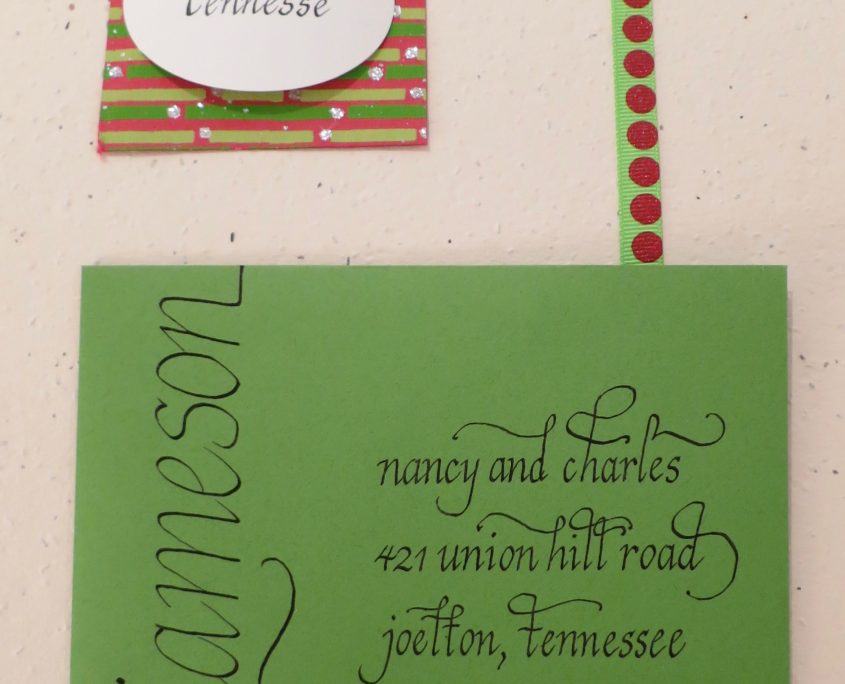 tennesse
jameson
nancy and charles
421 union hill road
joelton, tennessee